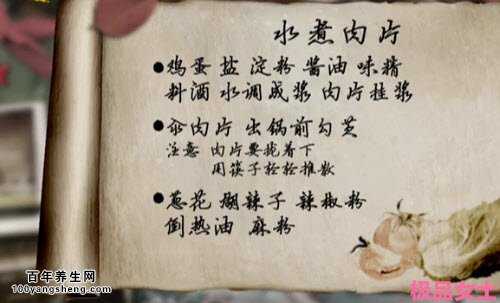 水煮肉片
鸡蛋 盐 淀粉 酱油 味精
料酒 水调成浆 肉片挂浆
汆肉片 出锅前勾芡
注意 肉片要抗着下
用筷子轻轻推散
葱花 煳辣子 辣椒粉
倒热油 麻粉
百年养生网
100yangsheng.com
极品女士